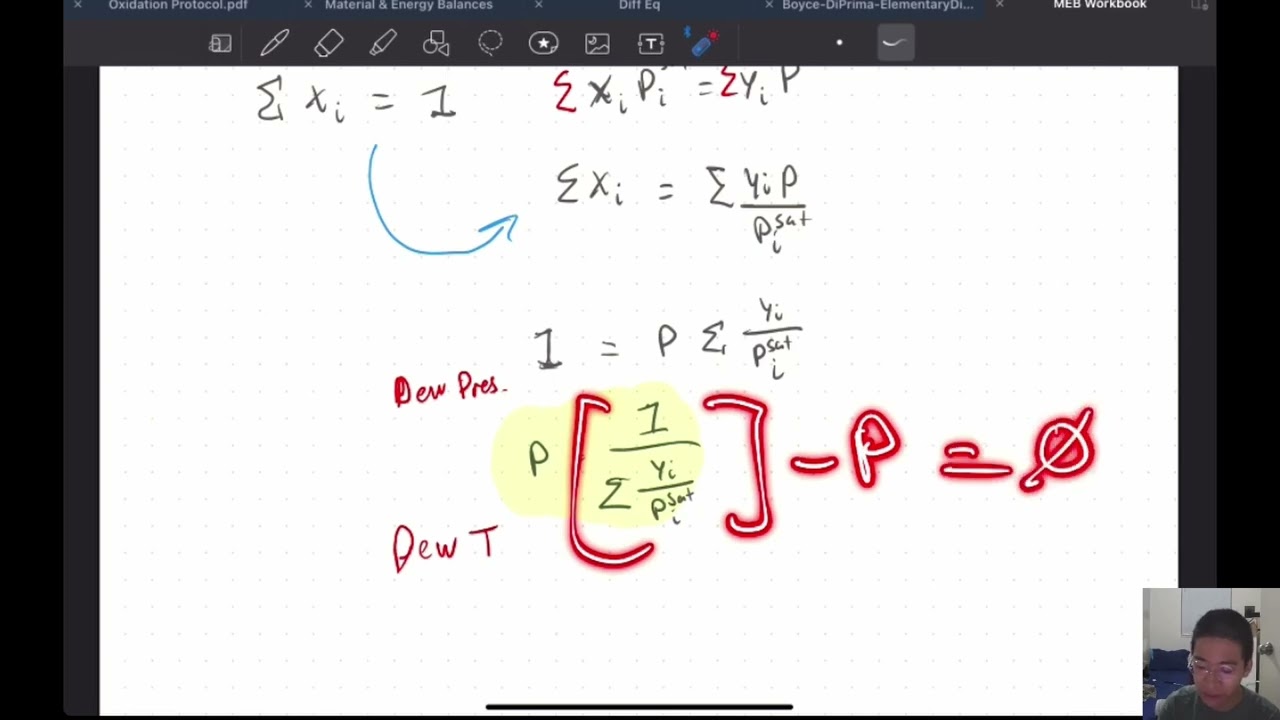 Oxidation Protocol.pdf Material & Energy Balances Diff Eq Boyce-DiPrima-ElementaryDi... MEB Workbook
Σ xᵢ = 1 Σ xᵢ Pᵢ = Σ yᵢ P
Σ xᵢ = Σ yᵢ P / Pᵢ^sat
1 = P Σ yᵢ / Pᵢ^sat
Dew Pres.
P [ 1 / Σ yᵢ / Pᵢ^sat ] - P = ∅
Dew T